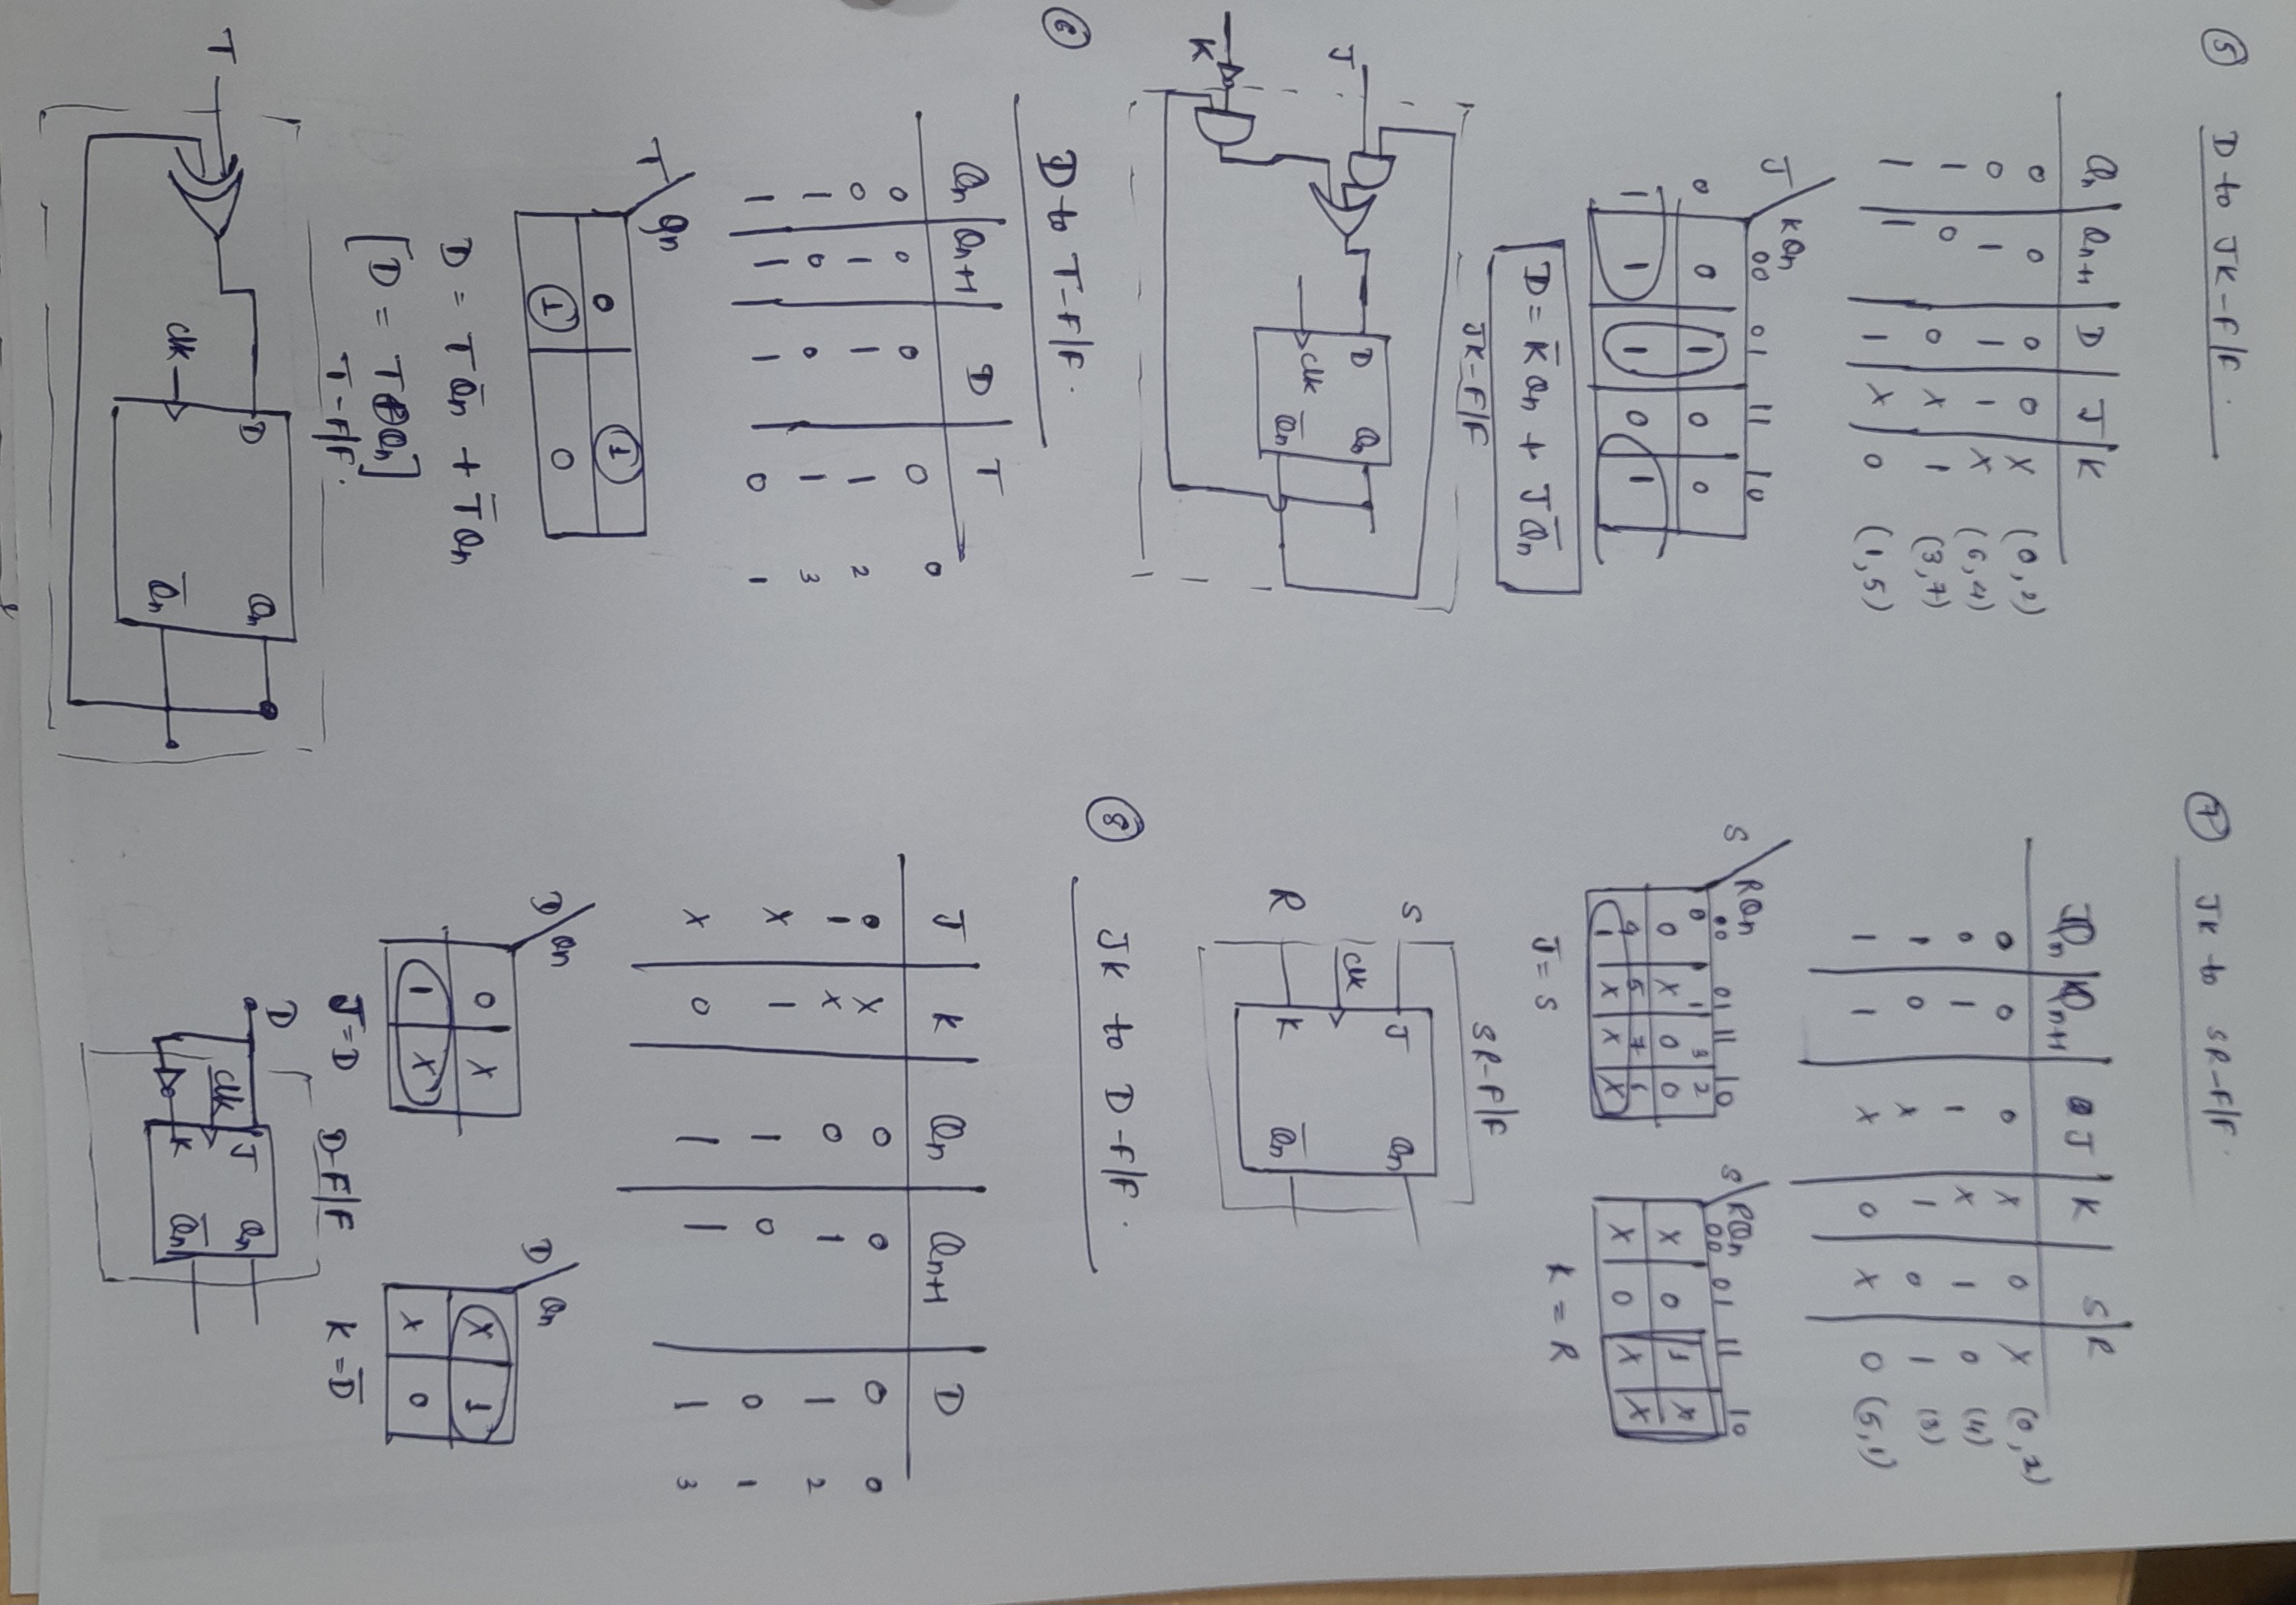 ⑤ D to JK-F/F.
Qn Qn+1 D J K
0 0 0 0 X (0,2)
0 1 1 1 X (6,4)
1 0 0 X 1 (3,7)
1 1 1 X 0 (1,5)
J KQn 00 01 11 10
0 0 1 0 0
1 1 1 0 1
D = K̅Qn + JQ̅n
JK-F/F
J
K
D Qn
clk
Q̅n
⑥ D to T-F/F.
Qn Qn+1 D T
0 0 0 0 0
0 1 1 1 2
1 0 0 1 3
1 1 1 0 1
T Qn
0 1
1 0
D = TQ̅n + T̅Qn
[D = T⊕Qn]
T-F/F.
T
D Qn
clk
Q̅n
⑦ JK to SR-F/F.
Qn Qn+1 J K S R
0 0 0 X 0 X (0,2)
0 1 1 X 1 0 (4)
1 0 X 1 0 1 (3)
1 1 X 0 X 0 (5,1)
S RQn 00 01 11 10
0 1 3 2
0 X 0 0
4 5 7 6
1 X X X
J = S
S RQn 00 01 11 10
X 0 1 X
X 0 X X
K = R
SR-F/F
S J Qn
clk
R K Q̅n
⑧ JK to D-F/F.
J K Qn Qn+1 D
0 X 0 0 0 0
1 X 0 1 1 2
X 1 1 0 0 1
X 0 1 1 1 3
D Qn
0 X
1 X
J = D
D Qn
X 1
X 0
K = D̅
D-F/F
D
J Qn
clk
K Q̅n